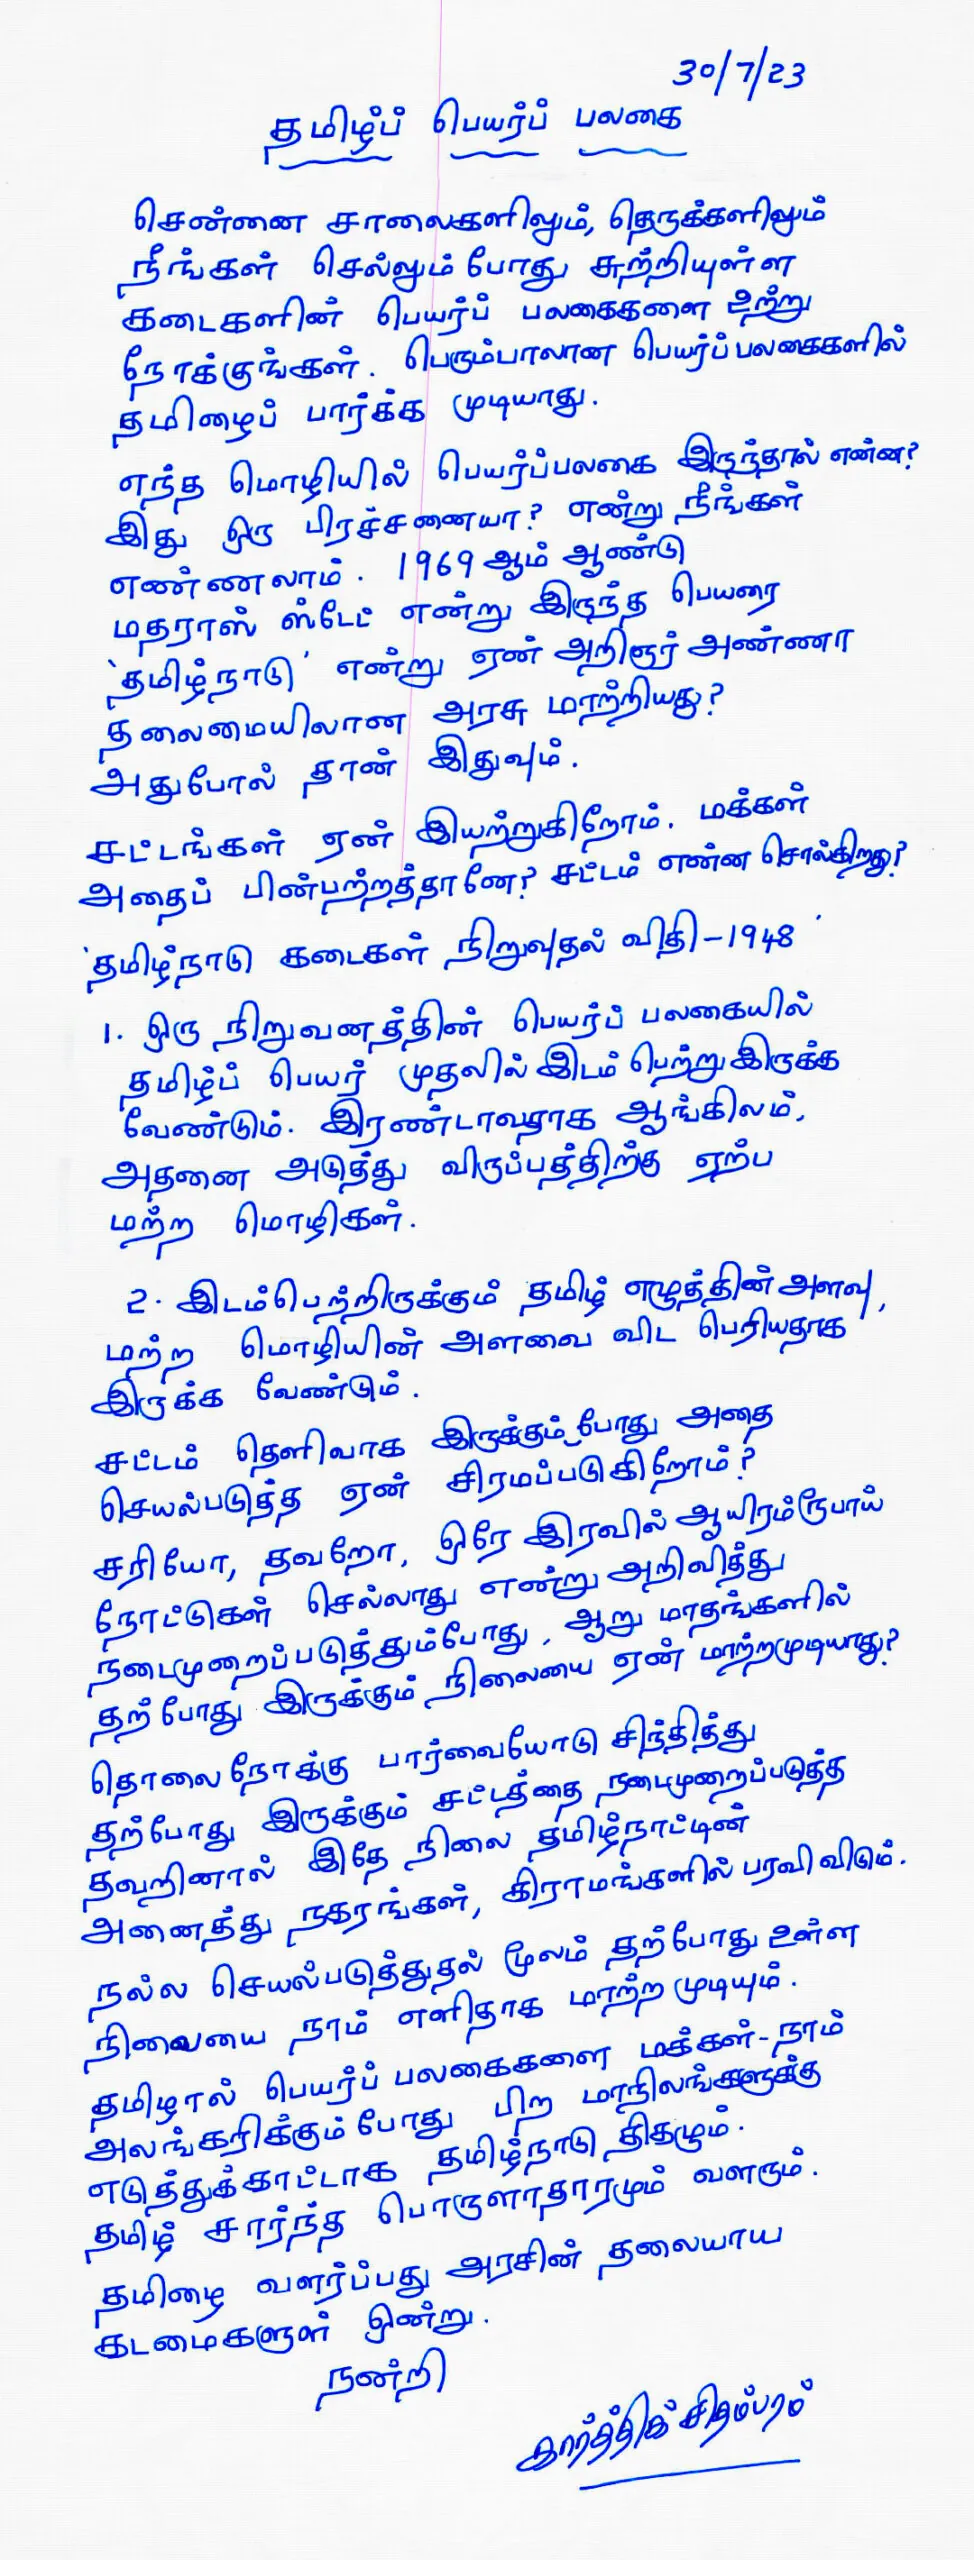 30/7/23
தமிழ்ப் பெயர்ப் பலகை
சென்னை சாலைகளிலும், தெருக்களிலும்
நீங்கள் செல்லும் போது சுற்றியுள்ள
கடைகளின் பெயர்ப் பலகைகளை உற்று
நோக்குங்கள். பெரும்பாலான பெயர்ப்பலகைகளில்
தமிழைப் பார்க்க முடியாது.
எந்த மொழியில் பெயர்ப்பலகை இருந்தால் என்ன?
இது ஒரு பிரச்சனையா? என்று நீங்கள்
எண்ணலாம். 1969 ஆம் ஆண்டு
மதராஸ் ஸ்டேட் என்று இருந்த பெயரை
'தமிழ்நாடு' என்று ஏன் அறிஞர் அண்ணா
தலைமையிலான அரசு மாற்றியது?
அதுபோல் தான் இதுவும்.
சட்டங்கள் ஏன் இயற்றுகிறோம். மக்கள்
அதைப் பின்பற்றத்தானே? சட்டம் என்ன சொல்கிறது?
'தமிழ்நாடு கடைகள் நிறுவுதல் விதி - 1948'
1. ஒரு நிறுவனத்தின் பெயர்ப் பலகையில்
தமிழ்ப் பெயர் முதலில் இடம் பெற்று இருக்க
வேண்டும். இரண்டாவதாக ஆங்கிலம்,
அதனை அடுத்து விருப்பத்திற்கு ஏற்ப
மற்ற மொழிகள்.
2. இடம்பெற்றிருக்கும் தமிழ் எழுத்தின் அளவு,
மற்ற மொழியின் அளவை விட பெரியதாக
இருக்க வேண்டும்.
சட்டம் தெளிவாக இருக்கும் போது அதை
செயல்படுத்த ஏன் சிரமப்படுகிறோம்?
சரியோ, தவறோ, ஒரே இரவில் ஆயிரம் ரூபாய்
நோட்டுகள் செல்லாது என்று அறிவித்து
நடைமுறைப்படுத்தும்போது, ஆறு மாதங்களில்
தற்போது இருக்கும் நிலையை ஏன் மாற்றமுடியாது?
தொலைநோக்கு பார்வையோடு சிந்தித்து
தற்போது இருக்கும் சட்டத்தை நடைமுறைப்படுத்த
தவறினால் இதே நிலை தமிழ்நாட்டின்
அனைத்து நகரங்கள், கிராமங்களில் பரவி விடும்.
நல்ல செயல்படுத்துதல் மூலம் தற்போது உள்ள
நிலையை நாம் எளிதாக மாற்ற முடியும்.
தமிழால் பெயர்ப் பலகைகளை மக்கள் - நாம்
அலங்கரிக்கும் போது பிற மாநிலங்களுக்கு
எடுத்துக்காட்டாக தமிழ்நாடு திகழும்.
தமிழ் சார்ந்த பொருளாதாரமும் வளரும்.
தமிழை வளர்ப்பது அரசின் தலையாய
கடமைகளுள் ஒன்று.
நன்றி
கார்த்திக் சிதம்பரம்